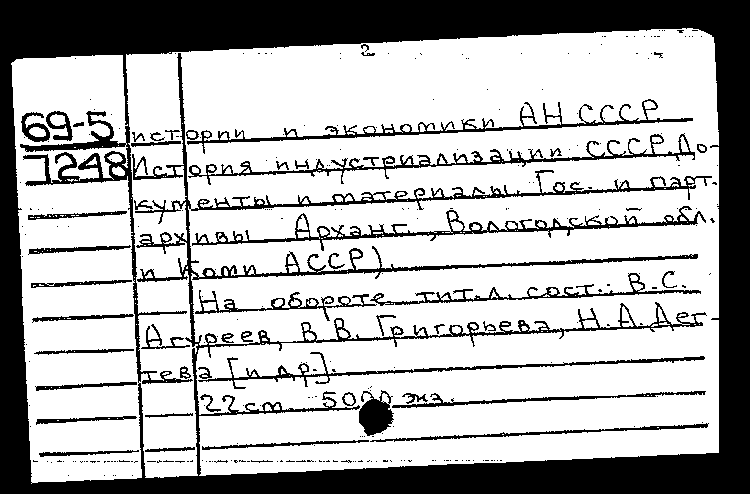 2
69-5
7248
истории и экономики АН СССР.
История индустриализации СССР. До-
кументы и материалы. Гос. и парт.
архивы Арханг., Вологодской обл.
и Коми АССР).
На обороте тит. л. сост.: В.С.
Асуреев, В.В. Григорьева, Н.А. Дег-
тева [и др.].
22 cm. 5000 экз.